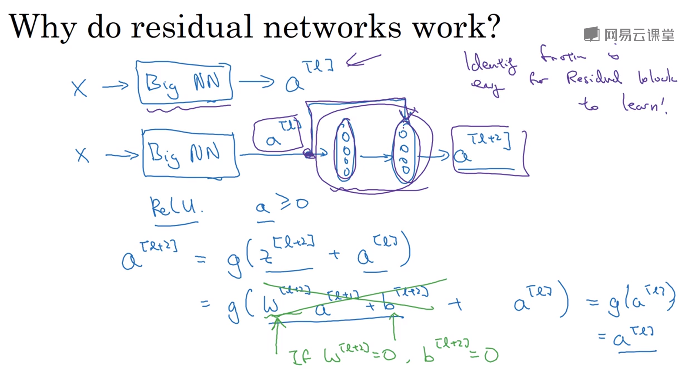 Why do residual networks work?
网易云课堂
X → Big NN → a^[l]
Identity function is
easy for Residual block
to learn!
X → Big NN → a^[l] → → a^[l+2]
ReLU. a ≥ 0
a^[l+2] = g(z^[l+2] + a^[l])
= g(W^[l+2] a^[l+1] + b^[l+2] + a^[l]) = g(a^[l])
= a^[l]
If W^[l+2]=0, b^[l+2]=0